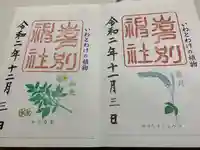 いわとわけの植物
別
神社
令和二年十一月三日
いわとわけの植物
別
神社
令和二年十二月三日